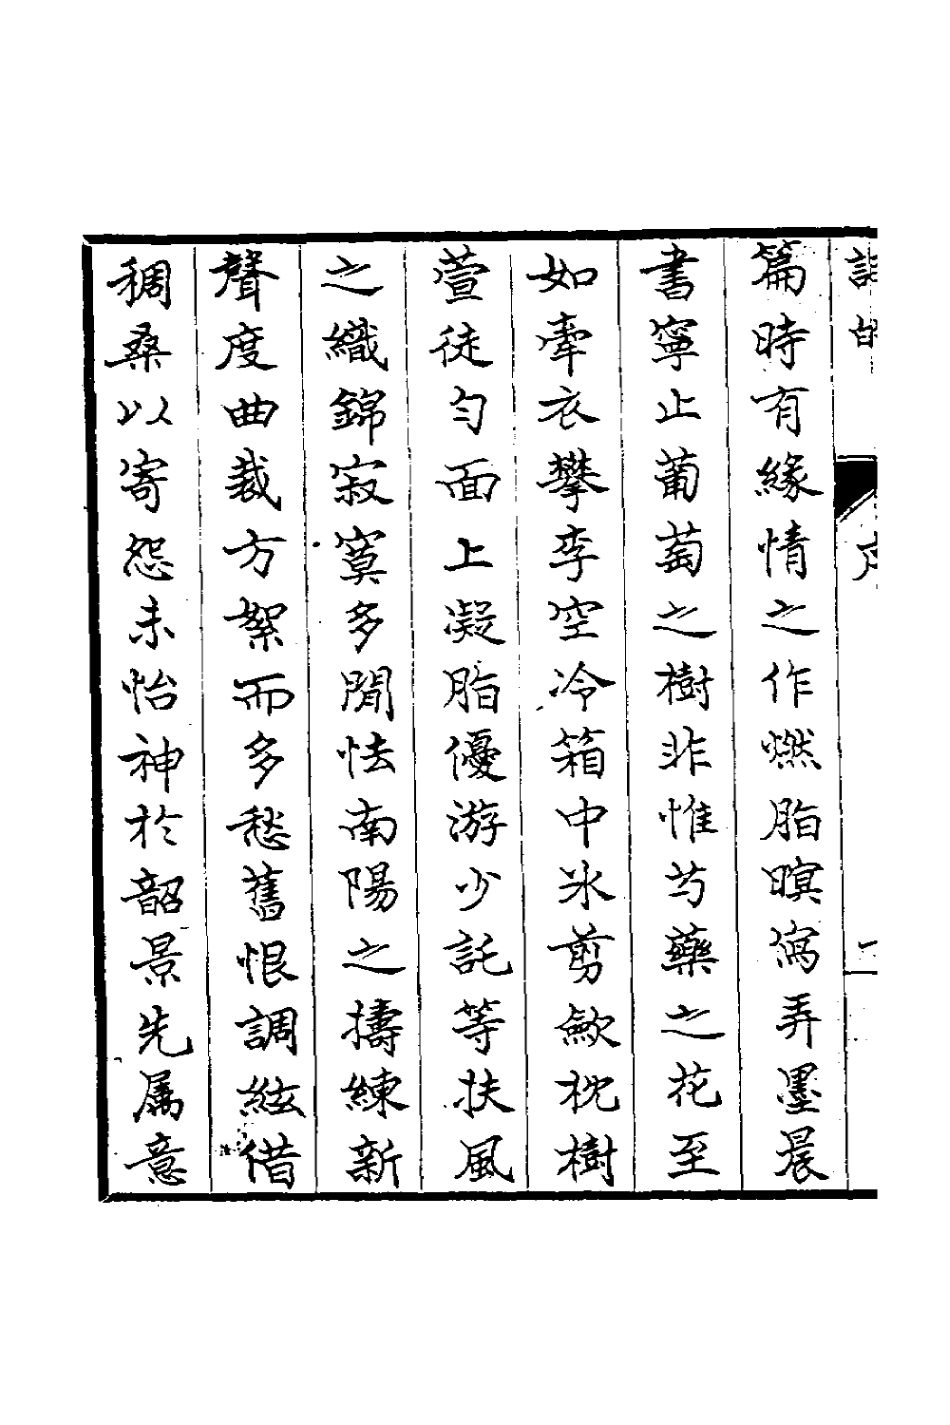 篇時有緣情之作燃脂暝寫弄墨晨
書寧止葡萄之樹非惟芍藥之花至
如牽衣攀李空冷箱中氷剪歛枕樹
萱徒勻面上凝脂優游少託等扶風
之織錦寂寞多閒怯南陽之擣練新
聲度曲裁方絮而多愁舊恨調絃借
稠桑以寄怨未怡神於韶景先属意